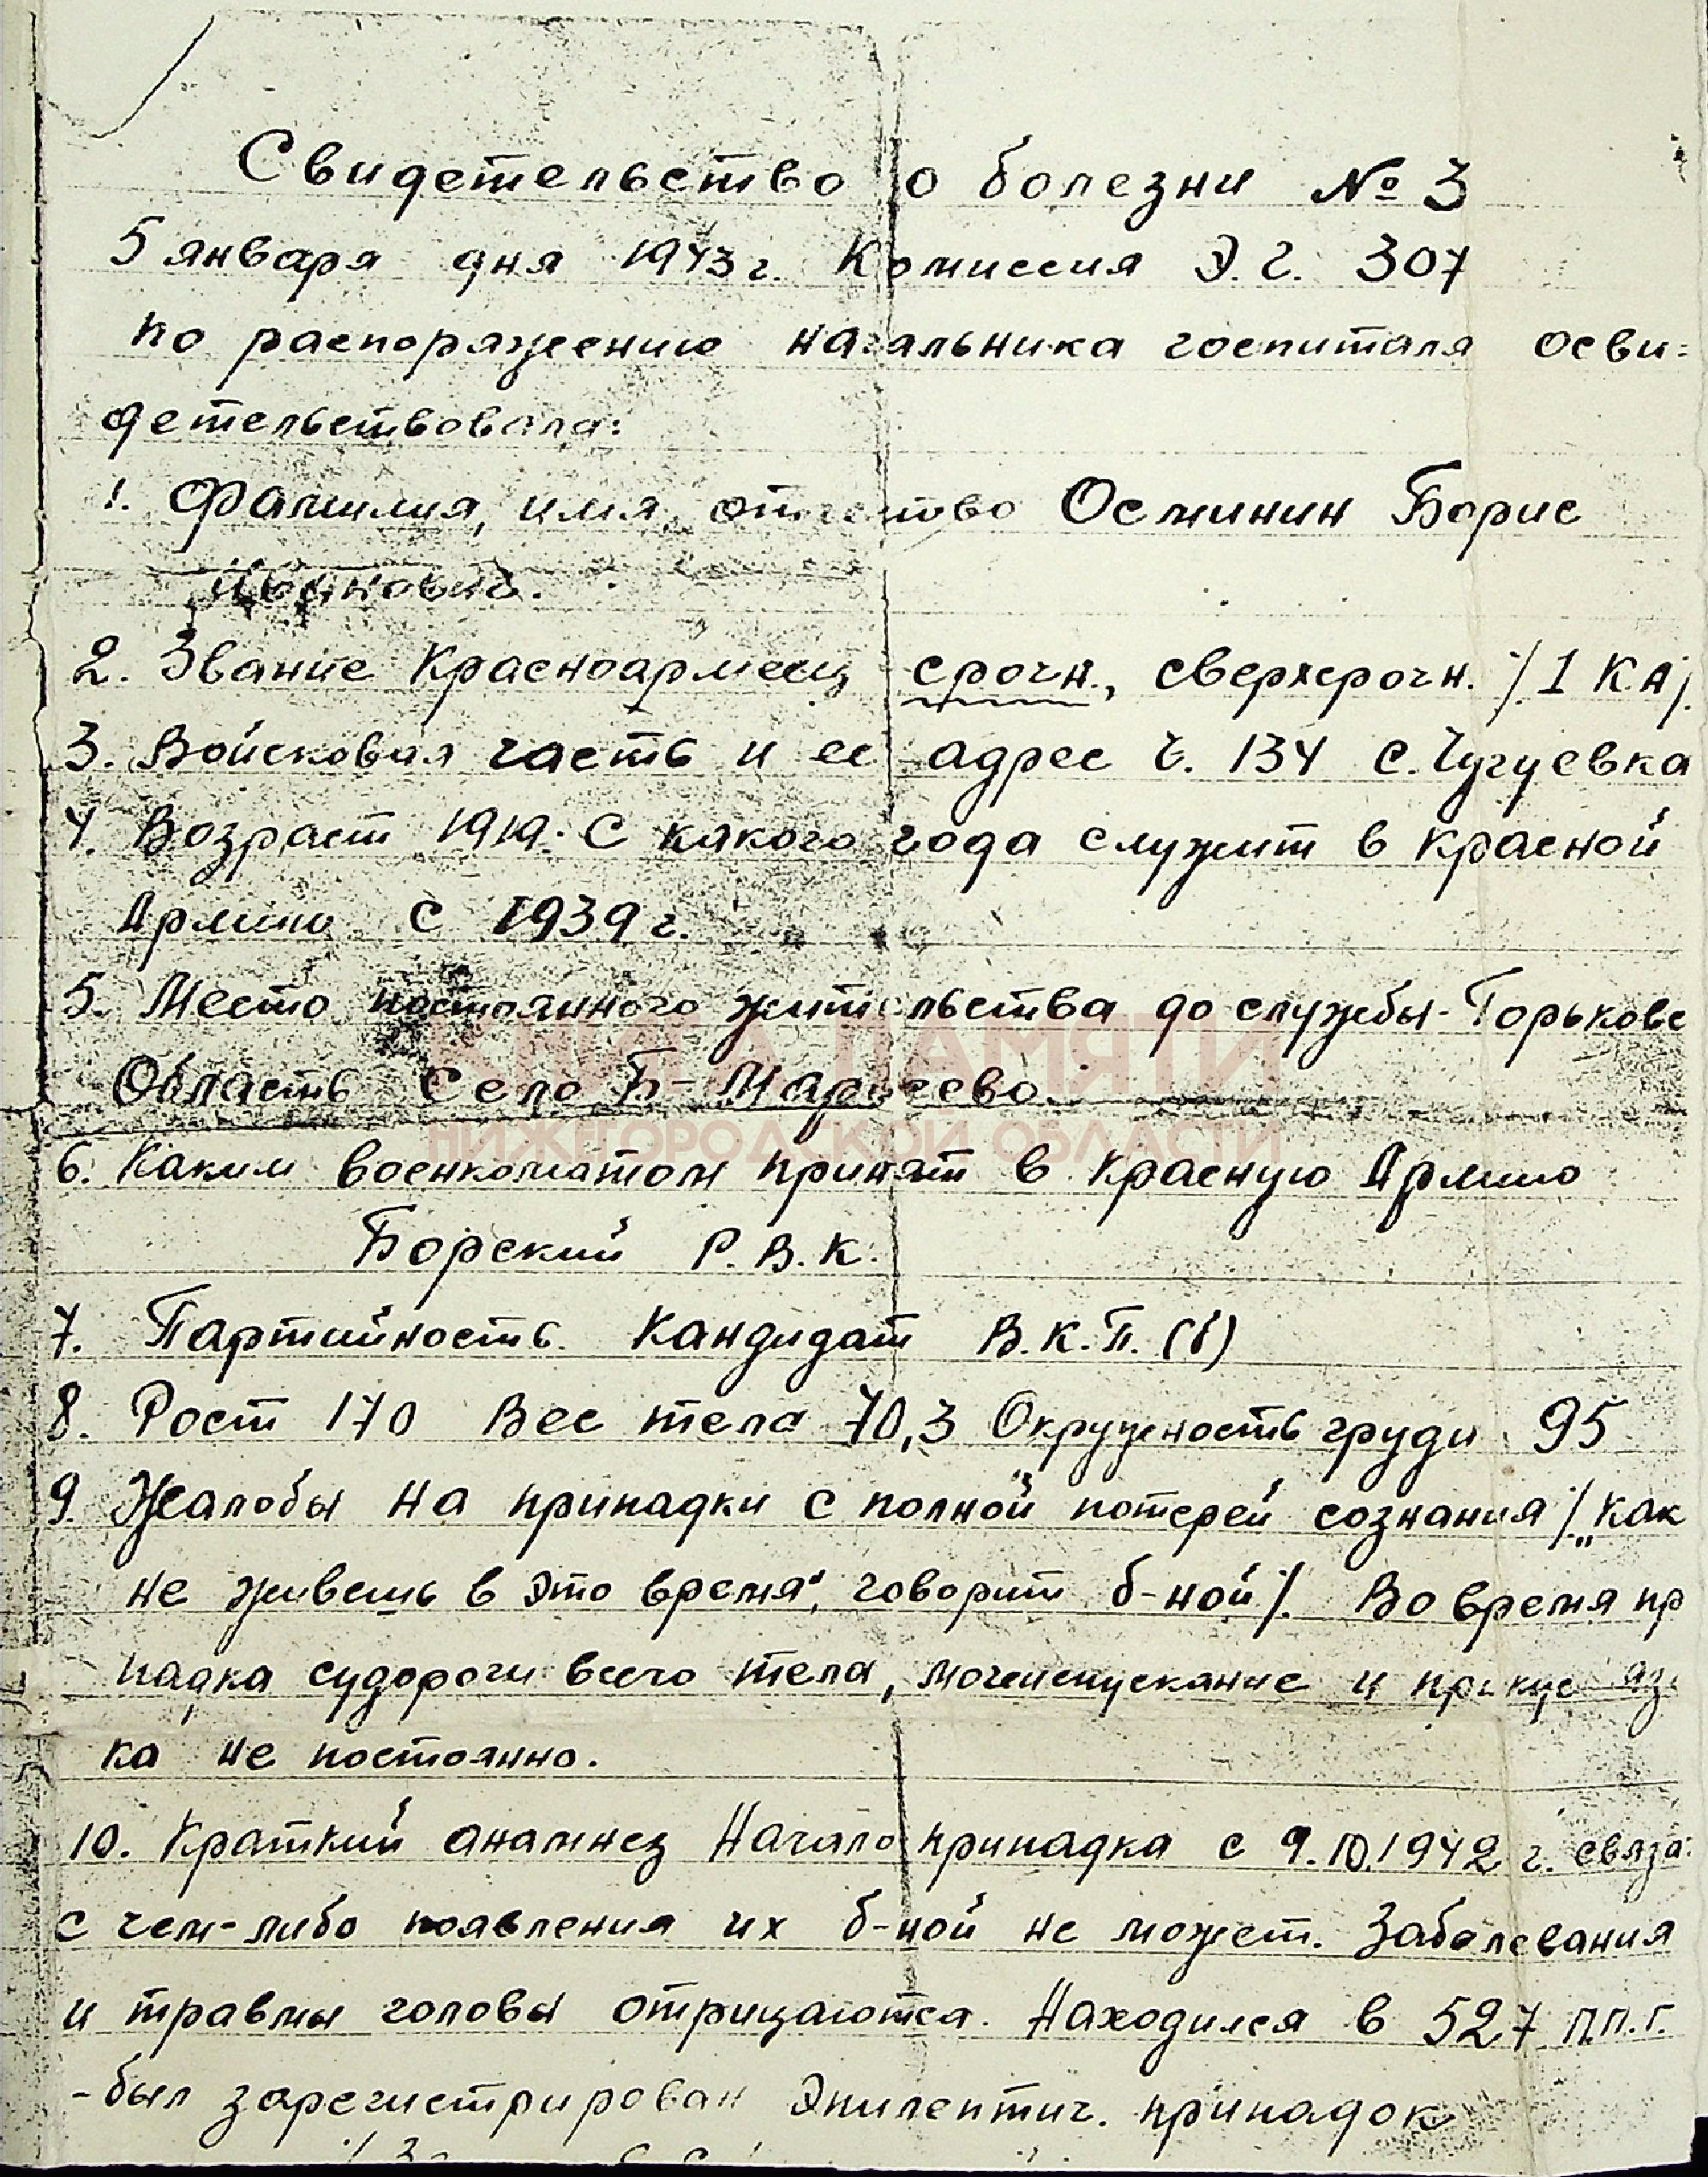 Свидетельство о болезни № 3
5 января дня 1943 г. Комиссия Э.Г. 307
по распоряжению начальника госпиталя осви=
детельствовала:
1. Фамилия, имя, отчество Осминин Борис
Иванович.
2. Звание Красноармеец срочн., сверхсрочн. /1 Кн/.
3. Войсковая часть и ее адрес ч. 134 с. Чугуевка
4. Возраст 1919. С какого года служит в Красной
Армии С 1939 г.
5. Место постоянного жительства до службы - Горьковс
Область Село Б-Маркеево.
КНИГА ПАМЯТИ
НИЖЕГОРОДСКОЙ ОБЛАСТИ
6. Каким военкоматом принят в Красную Армию
Борский Р.В.К.
7. Партийность Кандидат В.К.П.(б)
8. Рост 170 Вес тела 70,3 Окружность груди 95
9. Жалобы на припадки с полной потерей сознания /„как
не живешь в это время", говорит б-ной/. Во время пр
падка судороги всего тела, мочеиспускание и прикус язы
ка не постоянно.
10. Краткий анамнез Начало припадка с 9.10.1942 г. связа
с чем-либо появления их б-ной не может. Заболевания
и травмы головы отрицаются. Находился в 527 п.п.г.
- был зарегистрирован Эпилептич. припадок